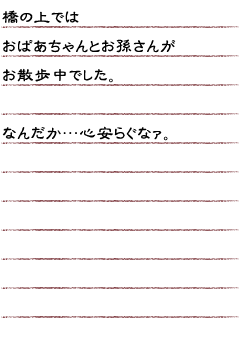 橋の上では
おばあちゃんとお孫さんが
お散歩中でした。
なんだか…心安らぐなァ。